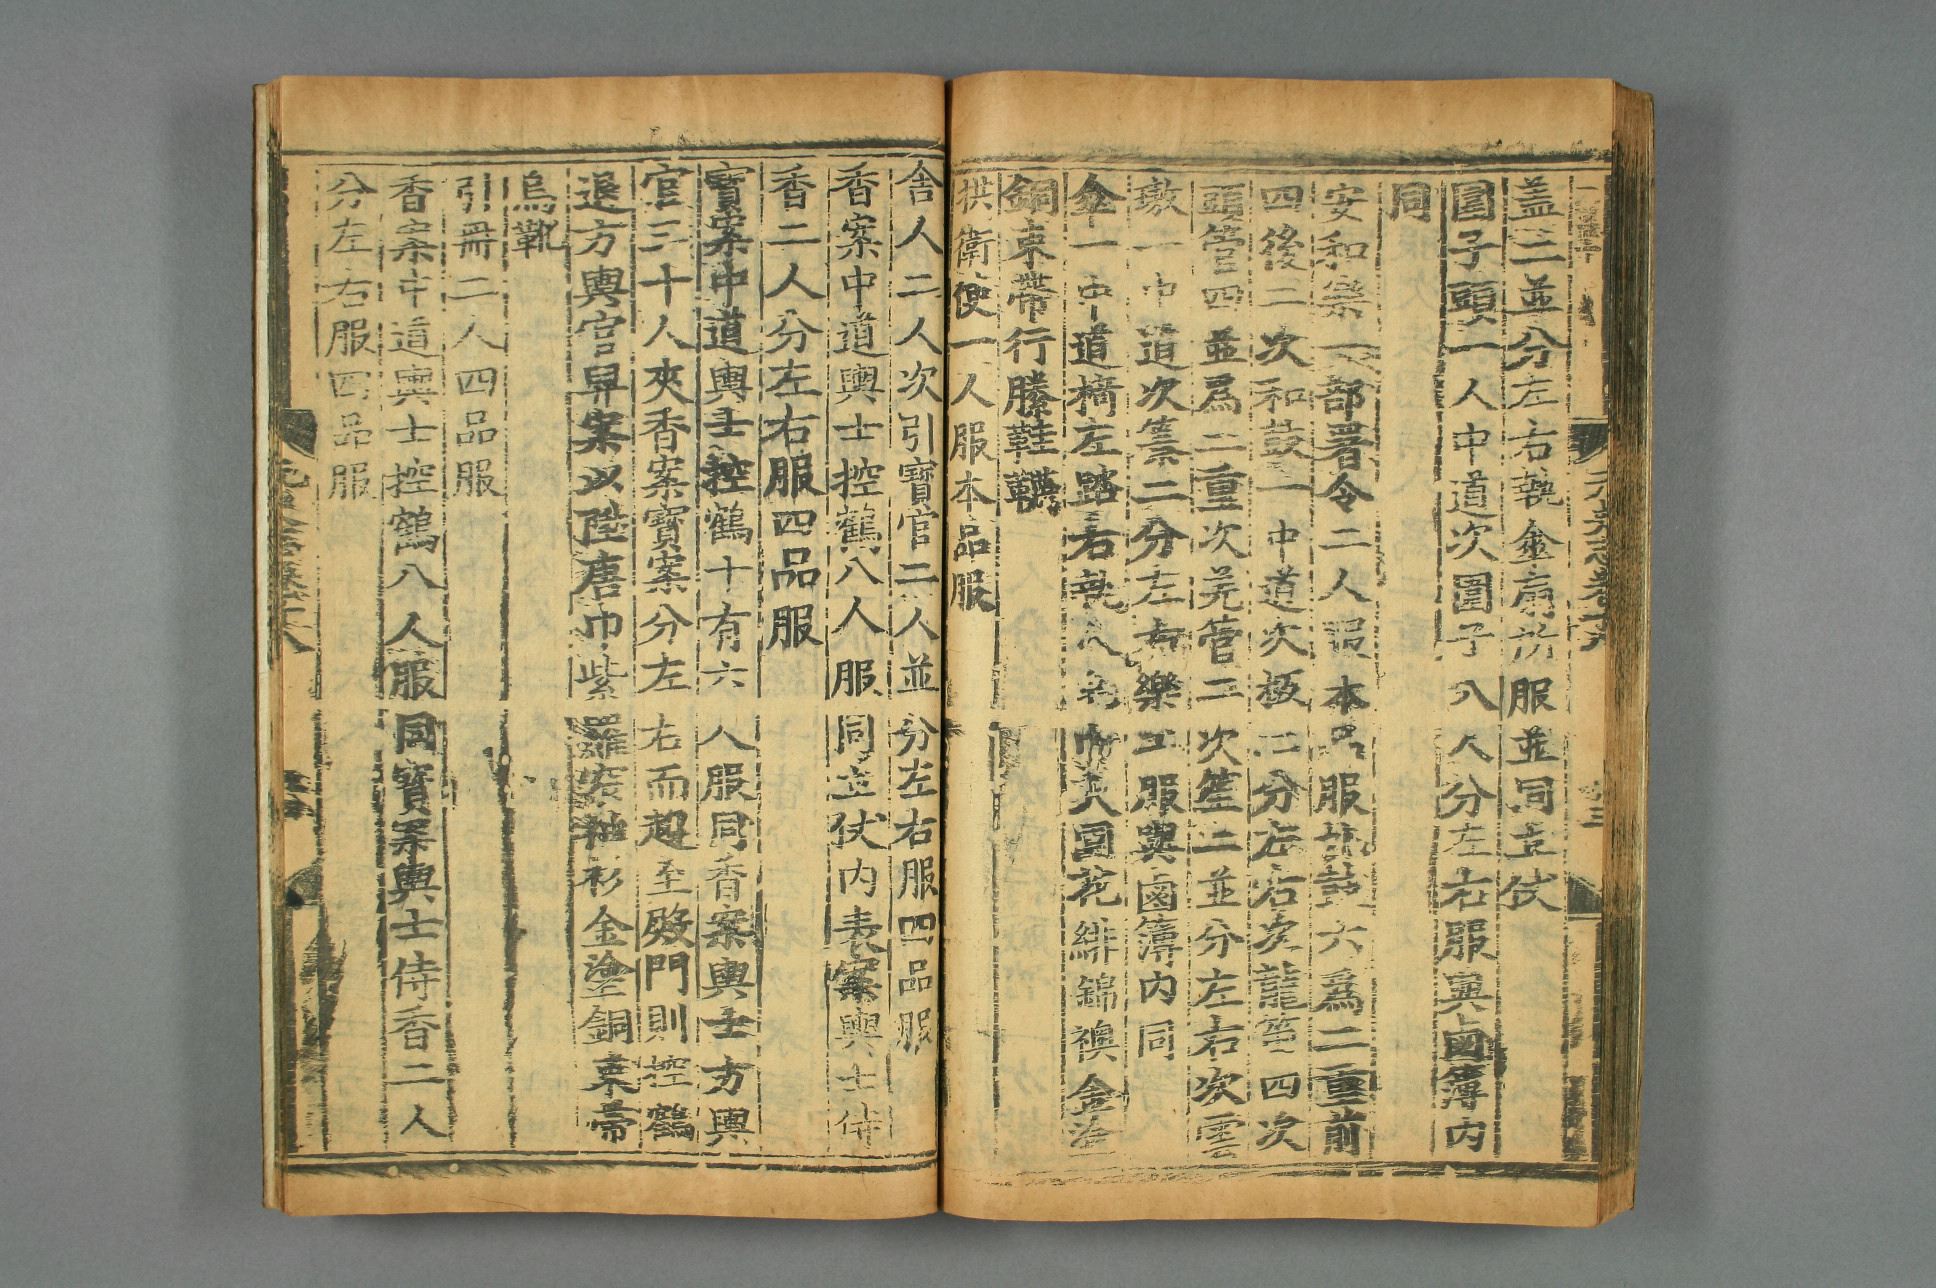 蓋二並分左右執金扇所服並同立仗
圍子頭一人中道次圍子八人分左右服與鹵簿內
同
安和樂一部署令二人服本品服札鼓六爲二重前
四後二次和鼓一中道次板二分左右次龍笛四次
頭管四並爲二重次羌管二次笙二並分左右次雲
璈一中道次䇶二分左右樂工服與鹵簿內同
傘一中道椅左踏右執人皂巾大團花緋錦襖金塗
銅束帶行縢鞋韈
拱衛使一人服本品服
舍人二人次引寶官二人並分左右服四品服
香案中道輿士控鶴八人服同立仗內表案輿士侍
香二人分左右服四品服
寶案中道輿士控鶴十有六人服同香案輿士方輿
官三十人夾香案寶案分左右而趨至殿門則控鶴
退方輿官舁案以陞唐巾紫羅窄袖衫金塗銅束帶
烏靴
引冊二人四品服
香案中道輿士控鶴八人服同寶案輿士侍香二人
分左右服四品服